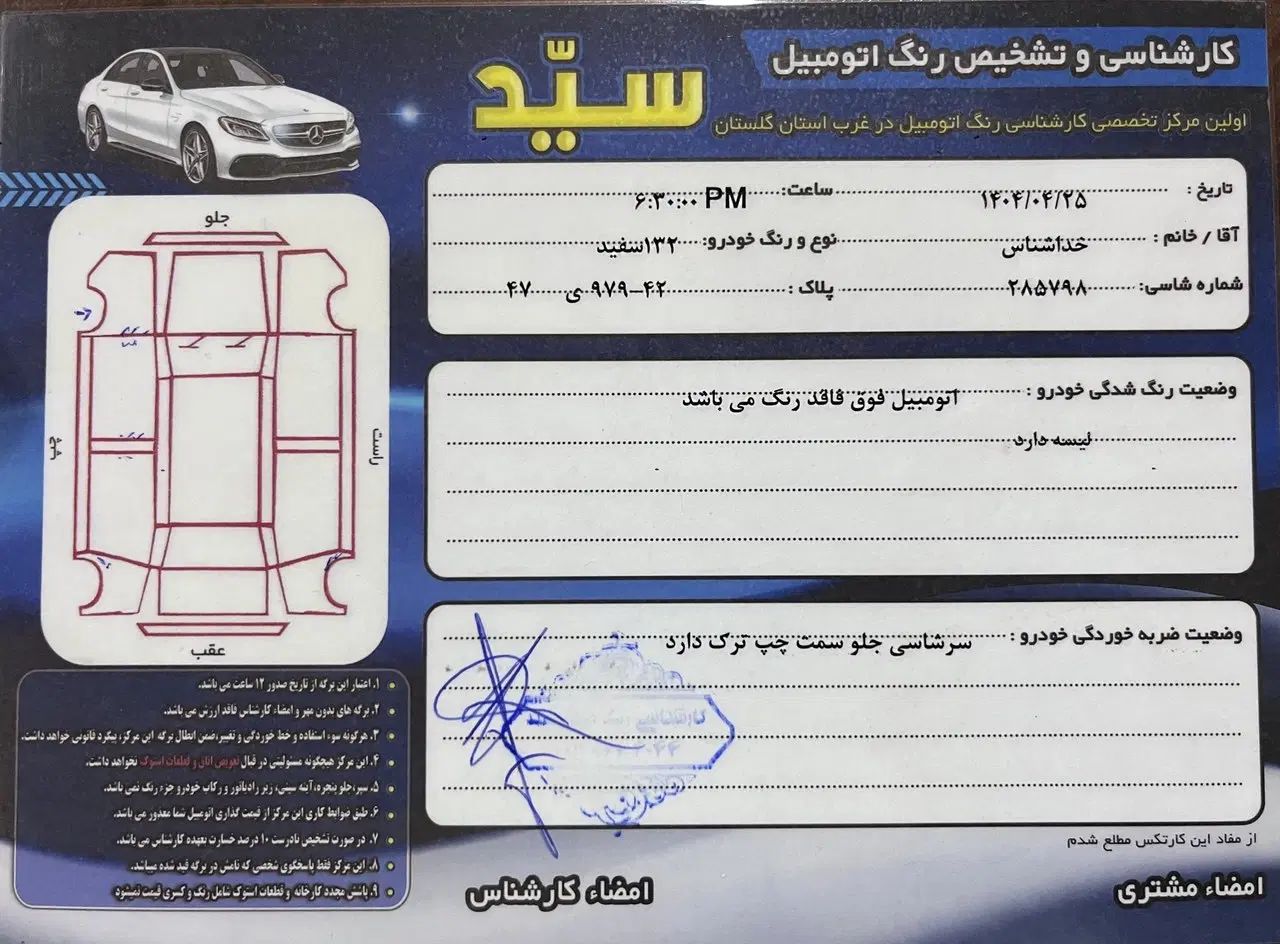 کارشناسی و تشخیص رنگ اتومبیل
سیّد
اولین مرکز تخصصی کارشناسی رنگ اتومبیل در غرب استان گلستان
تاریخ : ۱۴۰۴/۰۴/۲۵ ساعت: ۶:۳۰:۰۰ PM
آقا / خانم : خداشناس نوع و رنگ خودرو: ۱۳۲سفید
شماره شاسی: ۲۸۵۷۹۸ پلاک : ۴۲-۹۷۹ ی ۴۷
وضعیت رنگ شدگی خودرو : اتومبیل فوق فاقد رنگ می باشد
لیسه دارد
وضعیت ضربه خوردگی خودرو : سرشاسی جلو سمت چپ ترک دارد
از مفاد این کارتکس مطلع شدم
امضاء مشتری
امضاء کارشناس
جلو
راست
چپ
عقب
۱. اعتبار این برگه از تاریخ صدور ۱۲ ساعت می باشد.
۲. برگه های بدون مهر و امضاء کارشناس فاقد ارزش می باشد.
۳. هرگونه سوء استفاده و خط خوردگی و تغییر،ضمن ابطال برگه این مرکز، پیگرد قانونی خواهد داشت.
۴. این مرکز هیچگونه مسئولیتی در قبال تعویض اتاق و قطعات استوک نخواهد داشت.
۵. سپر،جلو پنجره، آینه سینی، زیر رادیاتور و رکاب خودرو جزء رنگ نمی باشد.
۶. طبق ضوابط کاری این مرکز از قیمت گذاری اتومبیل شما معذور می باشد.
۷. در صورت تشخیص نادرست ۱۰ درصد خسارت بعهده کارشناس می باشد.
۸. این مرکز فقط پاسخگوی شخصی که نامش در برگه قید شده میباشد.
۹. پاشش مجدد کارخانه و قطعات استوک شامل رنگ و کسری قیمت نمیشود